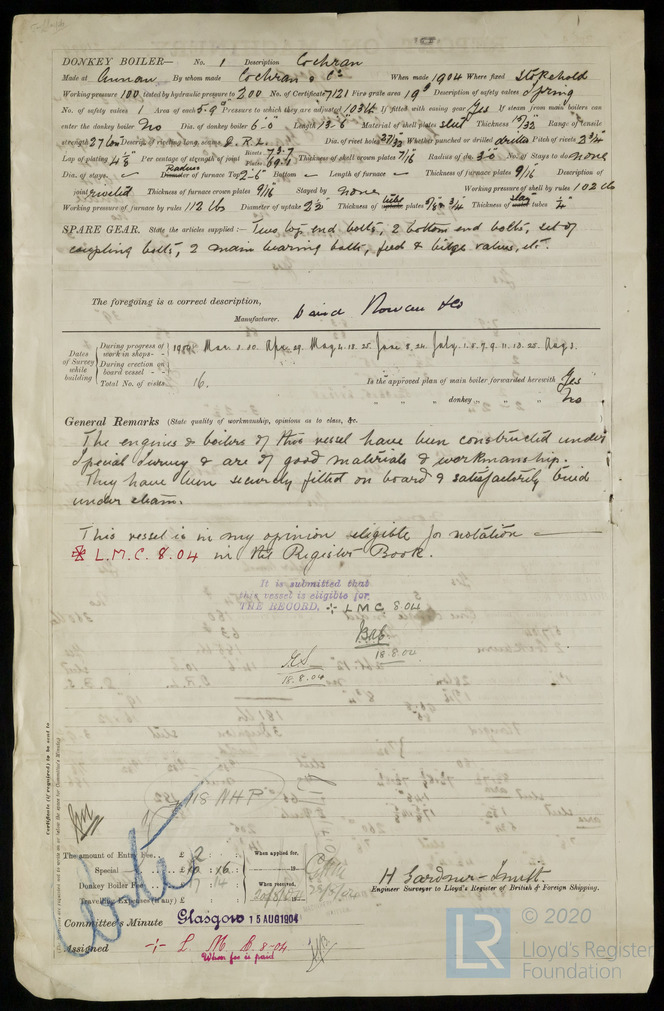 DONKEY BOILER— No. 1 Description Cochran
Made at Annan By whom made Cochran & Co When made 1904 Where fixed Stokehold
Working pressure 100 tested by hydraulic pressure to 200 No. of Certificate 7121 Fire grate area 19 Description of safety valves Spring
No. of safety valves 1 Area of each 5.9" Pressure to which they are adjusted 103 lb If fitted with easing gear Yes If steam from main boilers can
enter the donkey boiler No Dia. of donkey boiler 6'-0" Length 13'-6" Material of shell plates steel Thickness 15/32 Range of tensile
strength 27 tons Descrip. of riveting long. seams D.R.L. Dia. of rivet holes 27/32 Whether punched or drilled drilled Pitch of rivets 2 3/4
Lap of plating 4 1/8 Per centage of strength of joint Rivets 73.7 Plates 69.1 Thickness of shell crown plates 7/16 Radius of do. 3-0 No. of Stays to do. none
Dia. of stays. — Radius Diameter of furnace Top 2'-6" Bottom — Length of furnace — Thickness of furnace plates 9/16 Description of
joint riveted Thickness of furnace crown plates 9/16 Stayed by none Working pressure of shell by rules 102 lb
Working pressure of furnace by rules 112 lb Diameter of uptake Thickness of tube plates Thickness of stay tubes 1/4
SPARE GEAR. State the articles supplied:— Two top end bolts, 2 bottom end bolts, set of
coupling bolts, 2 main bearing bolts, feed & bilge valves, etc.
The foregoing is a correct description,
Manufacturer. David Rowan & Co
Dates of Survey while building
During progress of work in shops - - 1904. Mar. 3. 30. Apr. 29. May 4. 13. 25. June 8. 24. July 1. 5. 7. 9. 11. 13. 25. Aug 3.
During erection on board vessel - -
Total No. of visits 16. Is the approved plan of main boiler forwarded herewith Yes
" " " donkey " " " No
General Remarks (State quality of workmanship, opinions as to class, &c.
The engines & boilers of this vessel have been constructed under
Special Survey & are of good materials & workmanship.
They have been securely fitted on board & satisfactorily tried
under steam.
This vessel is in my opinion eligible for notation —
L.M.C. 8.04 in the Register Book.
It is submitted that
this vessel is eligible for
THE RECORD, + LMC 8.04
18.8.04
18.8.04
118 NHP
Certificate (if required) to be sent to
The amount of Entry Fee.. £ 2 : : When applied for,
Special .. .. £ : 16 :
Donkey Boiler Fee .. .. £ : : When received,
Travelling Expenses (if any) £ : :
H Gardner-Smith
Engineer Surveyor to Lloyd's Register of British & Foreign Shipping.
Committee's Minute Glasgow 15 AUG 1904
Assigned + L.M.C. 8.04
When fee is paid
LR © 2020
Lloyd's Register
Foundation